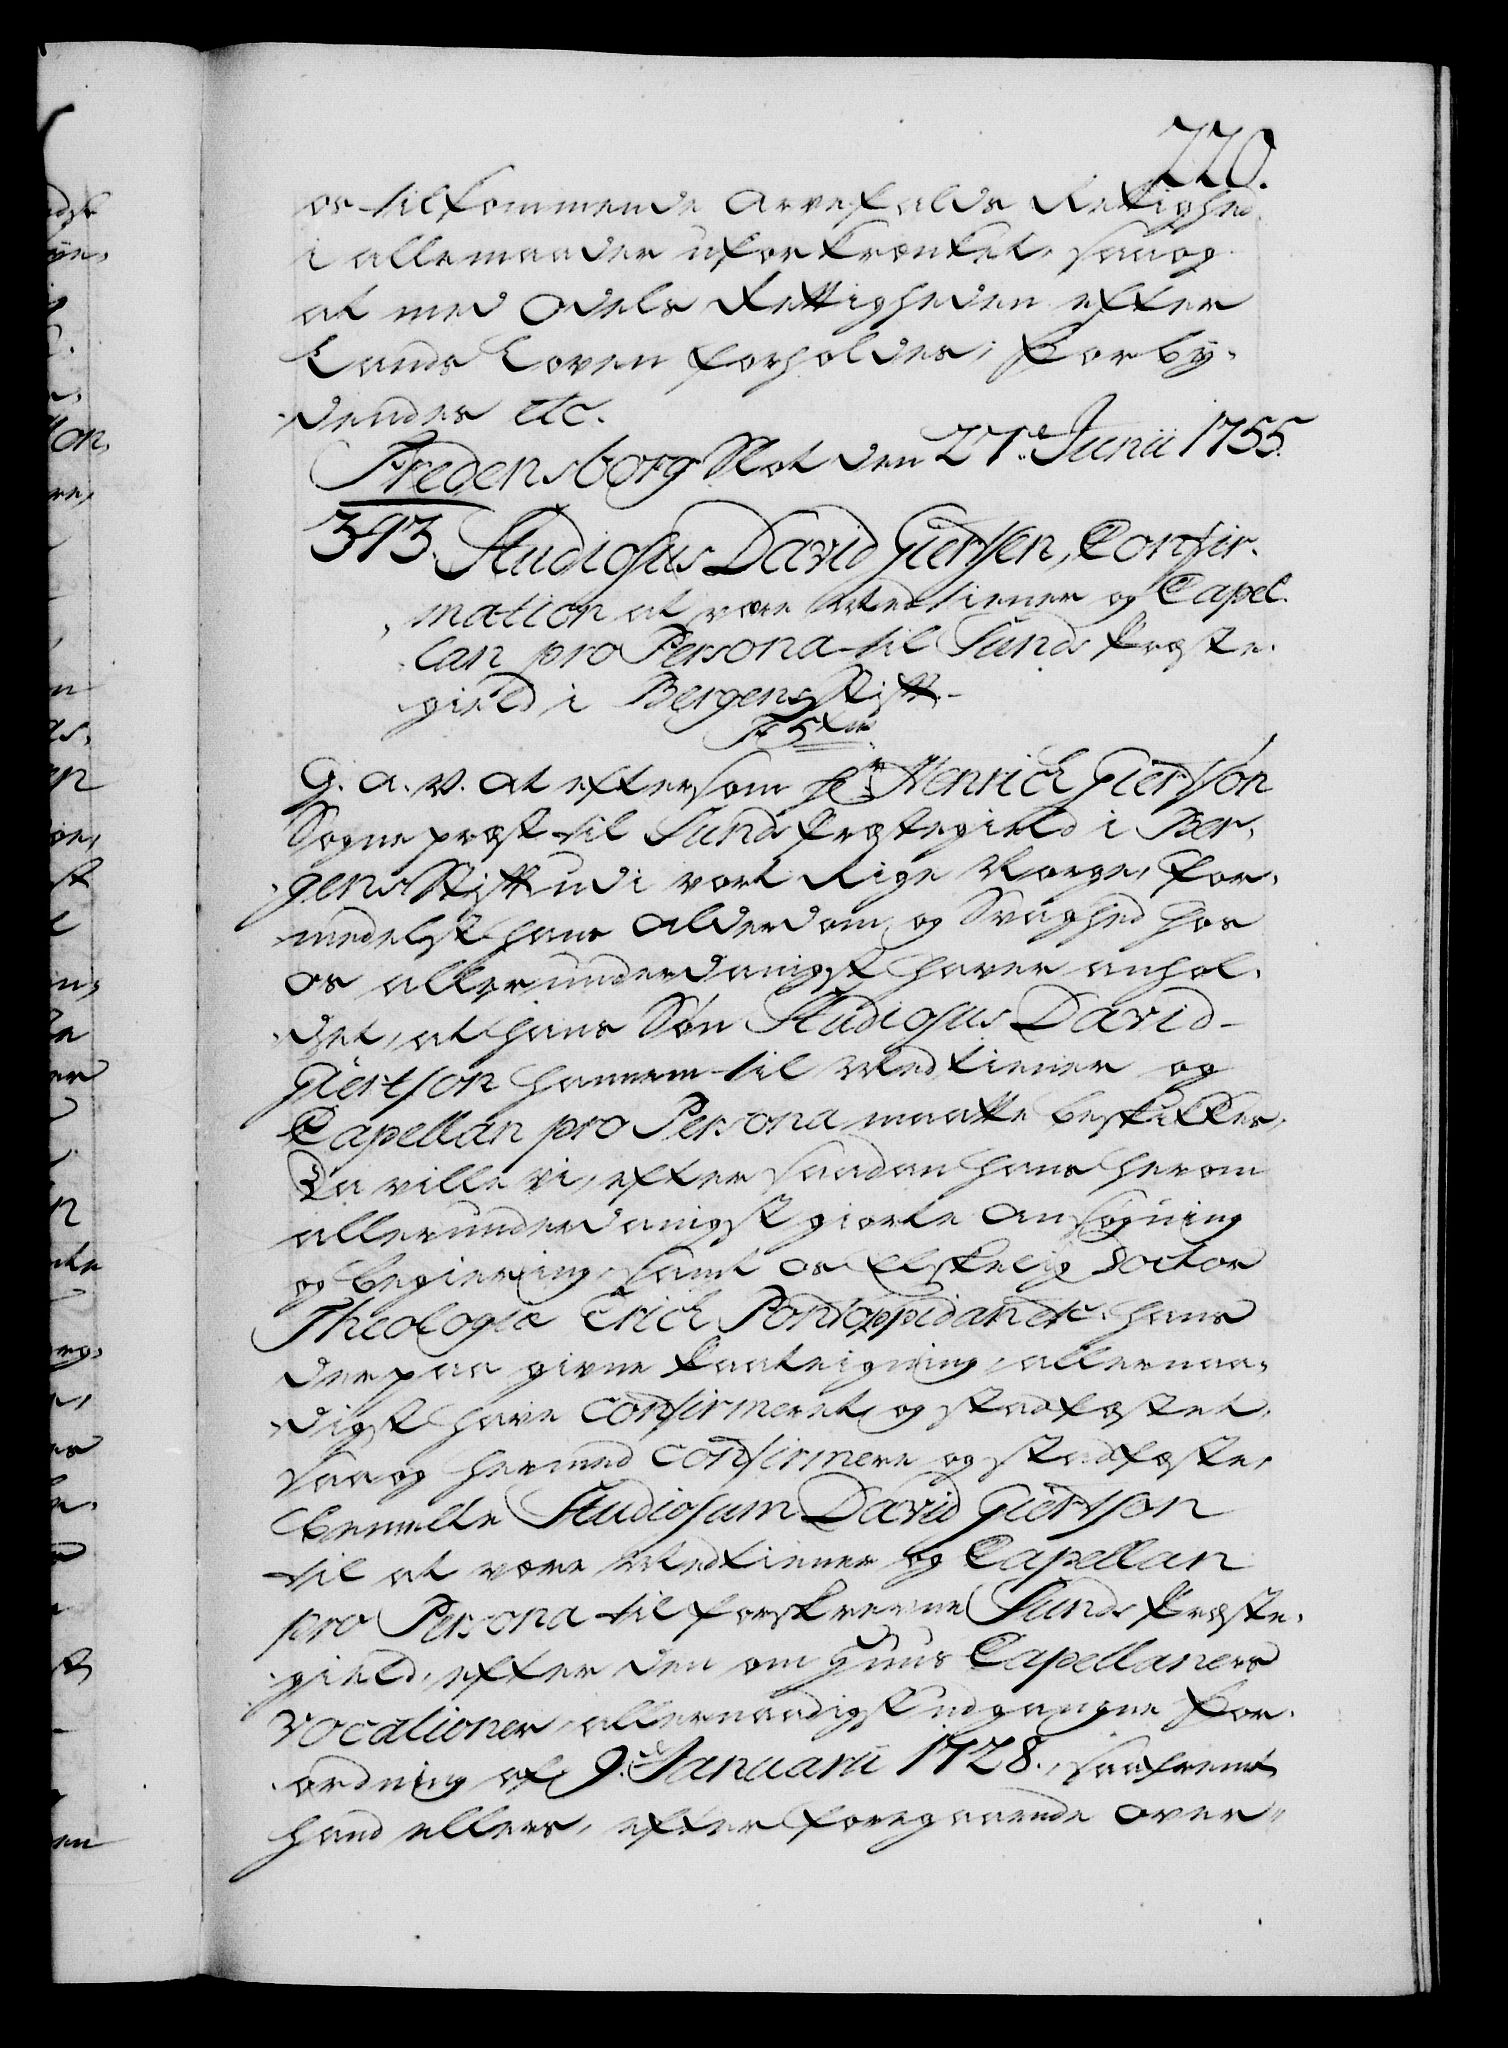 220.
os tilkommende Arvefalds Rettighed
i allemaader uforkrænket, saa og
at med Odels Rettigheden efter
Lands Loven forholdes; Forby-
dendes etc.
Fredensborg Slot den 27de Junii 1755.
393. Studiosus David Giertsen, Confir-
mation at være Medtiener og Capel-
lan pro Persona til Sunds Præste-
gield i Bergens Stift.
G. A. V. At eftersom Hr Henrich Giertson
Sognepræst til Sunds Præstegield i Ber-
gens Stift udi vort Rige Norge, for-
medelst hans Alderdom og Svaghed hos
os allerunderdanigst haver anhol-
det, at hans Søn Studiosus David
Giertson hannem til Medtiener og
Capellan pro Persona maatte beskikkes,
Da ville vi, efter saadan hans herom
allerunderdanigst giorte Ansøgning
og begiering, samt os Elskelig Doctor
Theologiæ Erich Pontoppidan etc. hans
derpaa givne Paategning, allernaa-
digst have confirmeret og stadfæstet,
saa og hermed confirmere og stadfæste,
bemelte Studiosum David Giertson
til at være Medtiener og Capellan
pro Persona til forskrevne Sunds Præste-
gield, efter den om Huus Capellaners
vocationer allernaadigst udgangne For-
ordning af 9. Januarii 1728., saafremt
hand ellers, efter foregaaende over-